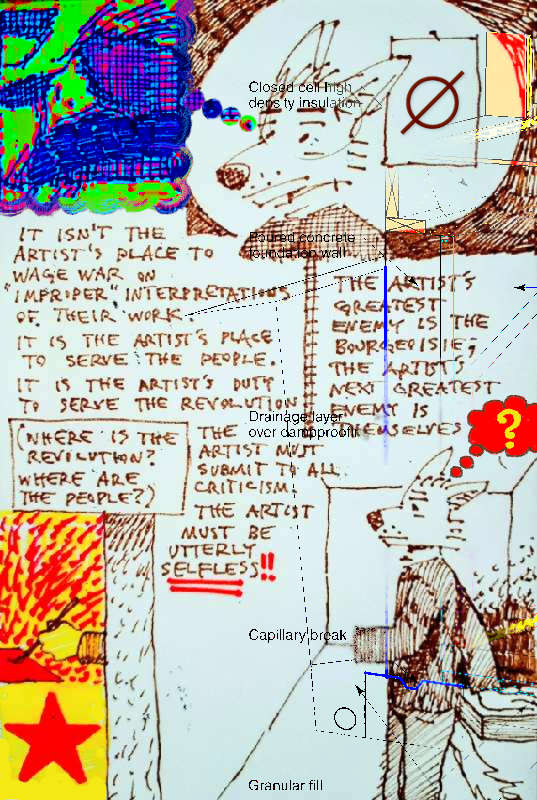 Closed cell high
density insulation
Poured concrete
foundation wall
IT ISN'T THE
ARTIST'S PLACE TO
WAGE WAR ON
"IMPROPER" INTERPRETATIONS
OF THEIR WORK.
IT IS THE ARTIST'S PLACE
TO SERVE THE PEOPLE.
IT IS THE ARTIST'S DUTY
TO SERVE THE REVOLUTION
(WHERE IS THE
REVOLUTION?
WHERE ARE
THE PEOPLE?)
THE
ARTIST MUST
SUBMIT TO ALL
CRITICISM.
THE ARTIST
MUST BE
UTTERLY
SELFLESS!!
THE ARTIST'S
GREATEST
ENEMY IS THE
BOURGEOISIE;
THE ARTIST'S
NEXT GREATEST
ENEMY IS
THEMSELVES
?
Drainage layer
over dampproofing
Capillary break
Granular fill